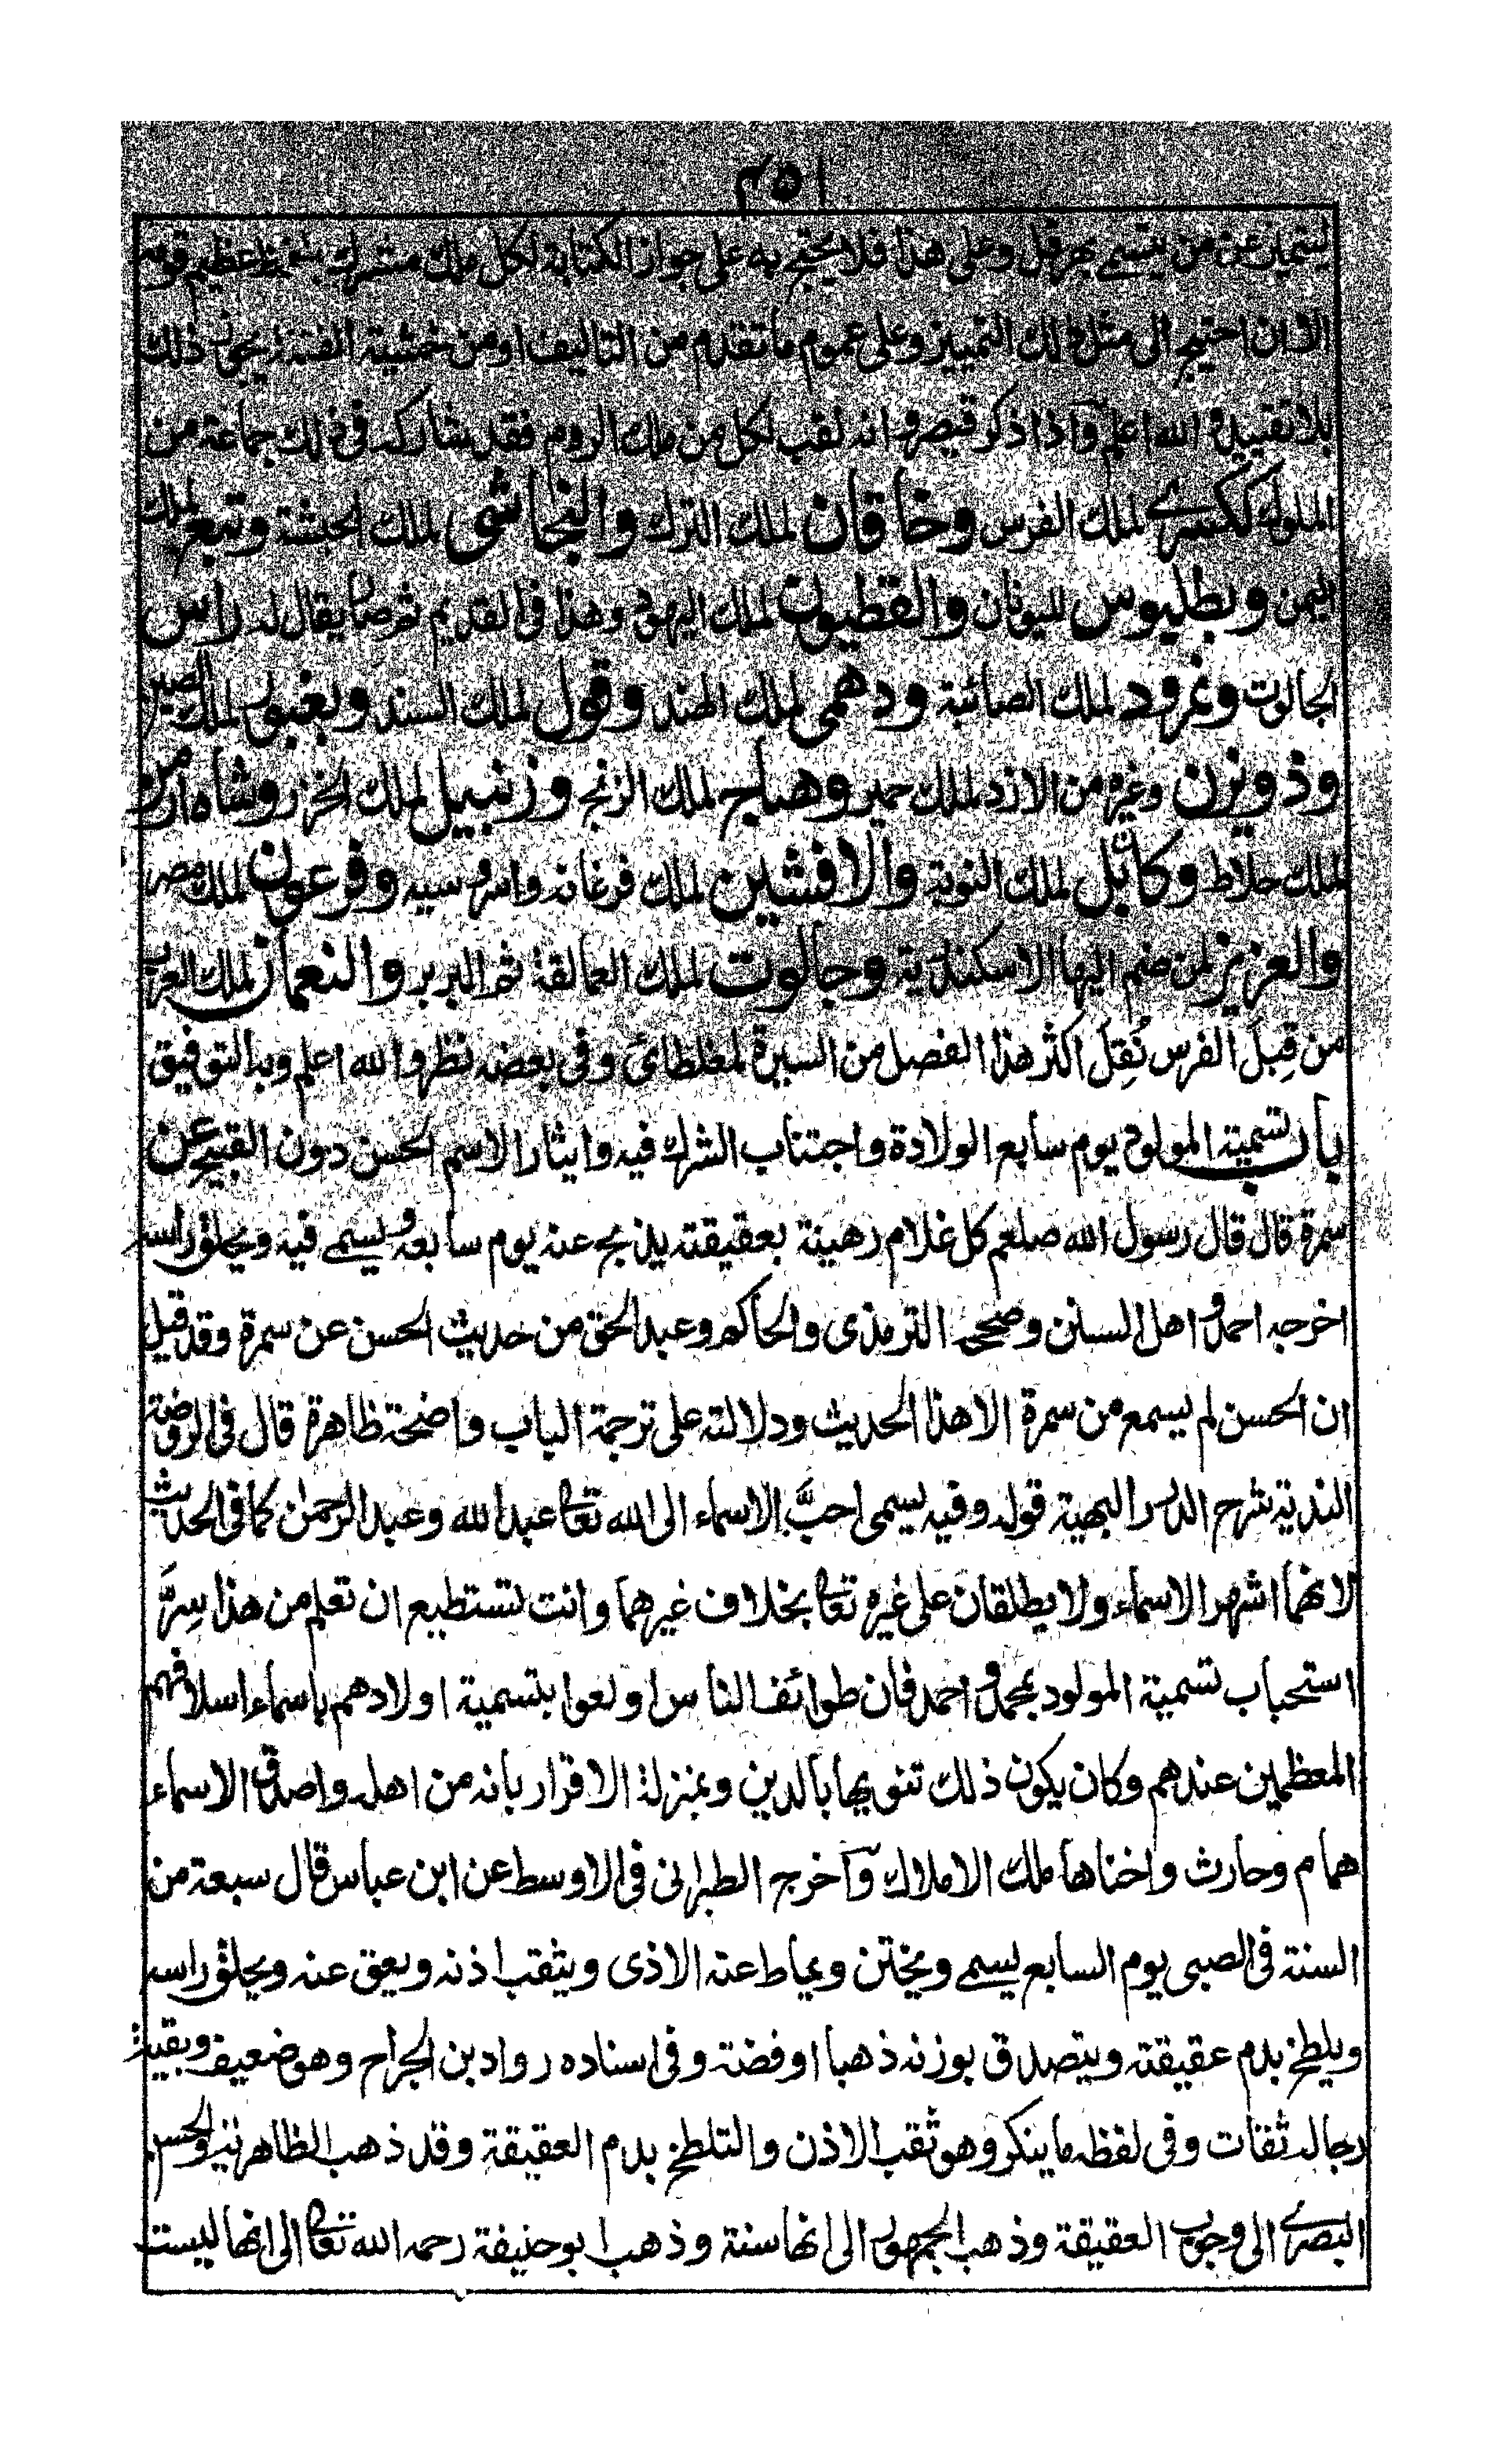 ٢٥١
ليتميز عن من يتسمى بهرقل وعلى هذا فلا يحتج به على جواز الكتابة لكل ملك مشرك بلفظ عظيم قومه
الا ان احتيج الى مثل ذلك التمييز وعلى عموم ما تقدم من التاليف او من خشية الفتنة يجوز ذلك
بلا تقييد والله اعلم واذا ذكر قيصر وانه لقب لكل من ملك الروم فقد شاركه فى ذلك جماعة من
الملوك ككسرے لملك الفرس وخاقان لملك الترك والنجاشى لملك الحبشة وتبع لملك
اليمن وبطليوس لليونان والقطيون لملك اليهود وهذا فى القديم ثم صار يقال له راس
الجالوت ونمرود لملك الصائبة ودهمى لملك الهند وقول لملك السند ويغبور لملك الصين
وذويزن وغيره من الازد لملك حمير وهياج لملك الزنج وزنبيل لملك الخزر وشاه ارمن
لملك خلاط وكابل لملك النوبة والافشين لملك فرغانه واسروسيه وفرعون لملك مصر
والعزيز لمن ضم اليها الاسكندرية وجالوت لملك العمالقة ثم البربر والنعمان لملك العرب
من قِبَل الفرس نُقِلَ اكثر هذا الفصل من السيرة لمغلطائ وفى بعضه نظر والله اعلم وبه التوفيق
باب تسمية المولود يوم سابع الولادة واجتناب الشرك فيه وايثار الاسم الحسن دون القبيح عن
سمرة قال قال رسول الله صلعم كل غلام رهينة بعقيقته يذبح عنه يوم سابعه ويسمے فيه ويحلق راسه
اخرجه احمد واهل السنن وصححه الترمذى والحاكم وعبد الحق من حديث الحسن عن سمرة وقد قيل
ان الحسن لم يسمع من سمرة الا هذا الحديث ودلالته على ترجمة الباب واضحة ظاهرة قال فى الروضة
الندية شرح الدرر البهية قوله وفيه يسمى احبَّ الاسماء الى الله تعالى عبد الله وعبد الرحمٰن كما فى الحديث
لانهما اشهر الاسماء ولا يطلقان على غيره تعالى بخلاف غيرهما وانت تستطيع ان تعلم من هذا سِرَّ
استحباب تسمية المولود بمحمد واحمد فان طوائف الناس اولعوا بتسمية اولادهم باسماء اسلافهم
المعظمين عندهم وكان يكون ذلك تنويها بالدين وبمنزلة الاقرار بانه من اهله واصدق الاسماء
همام وحارث واخناها ملك الاملاك واخرج الطبرانى فى الاوسط عن ابن عباس قال سبعة من
السنة فى الصبى يوم السابع يسمے ويختن ويماط عنه الاذى ويثقب اذنه ويعق عنه ويحلق راسه
ويلطخ بدم عقيقته ويتصدق بوزنه ذهبا او فضة وفى اسناده رواد بن الجراح وهو ضعيف وبقية
رجاله ثقات وفى لفظه ما ينكر وهو ثقب الاذن والتلطخ بدم العقيقة وقد ذهب الظاهرية والحسن
البصرے الى وجوب العقيقة وذهب الجمهور الى انها سنة وذهب ابو حنيفة رحمه الله تعالى الى انها ليست